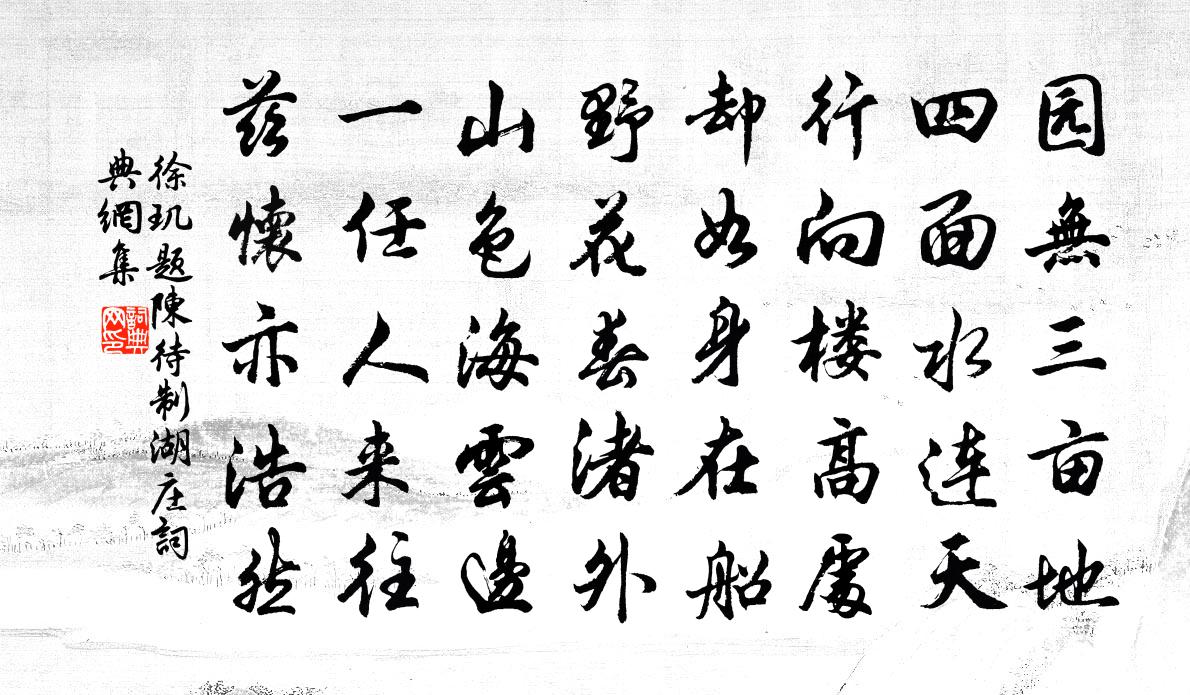 园無三亩地
四面水连天
行向楼高處
却如身在船
野花春渚外
山色海雲邊
一任人来往
兹懷亦浩然
徐玑题陳待制湖庄詞
典網集
詞典
网印